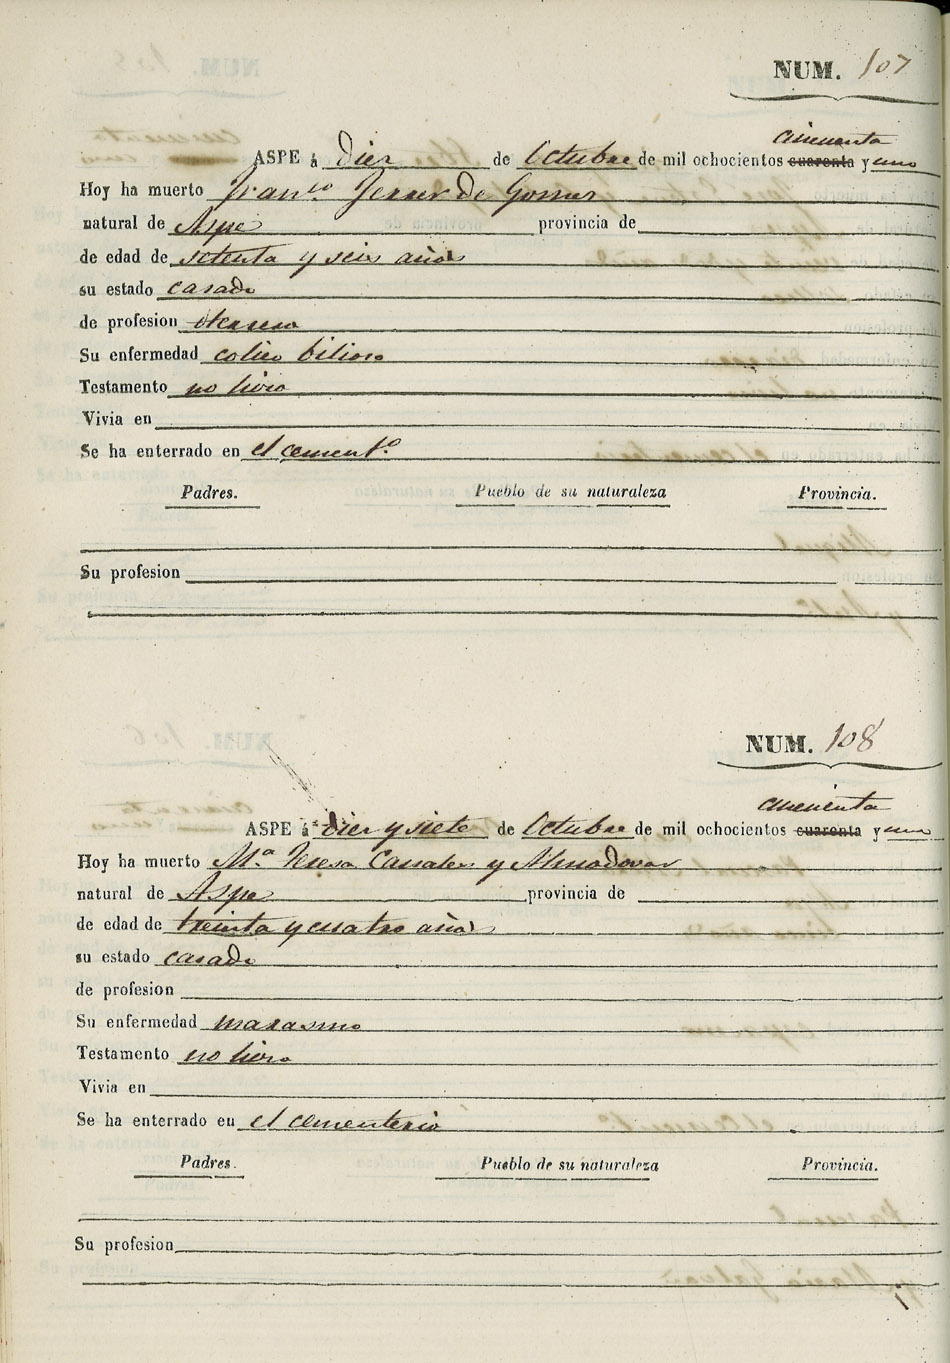 NUM. 107
cincuenta
ASPE á diez de Octubre de mil ochocientos cuarenta y uno
Hoy ha muerto Franco. Ferrer de Gomes
natural de Aspe provincia de
de edad de setenta y seis años
su estado casado
de profesion
Su enfermedad colico bilioso
Testamento no hizo
Vivia en
Se ha enterrado en el cemento.
Padres. Pueblo de su naturaleza Provincia.
Su profesion
NUM. 108
cincuenta
ASPE á diez y siete de Octubre de mil ochocientos cuarenta y uno
Hoy ha muerto Ma. Teresa Canales y Almodovar
natural de Aspe provincia de
de edad de treinta y cuatro años
su estado casada
de profesion
Su enfermedad marasmo
Testamento no hizo
Vivia en
Se ha enterrado en el cementerio
Padres. Pueblo de su naturaleza Provincia.
Su profesion